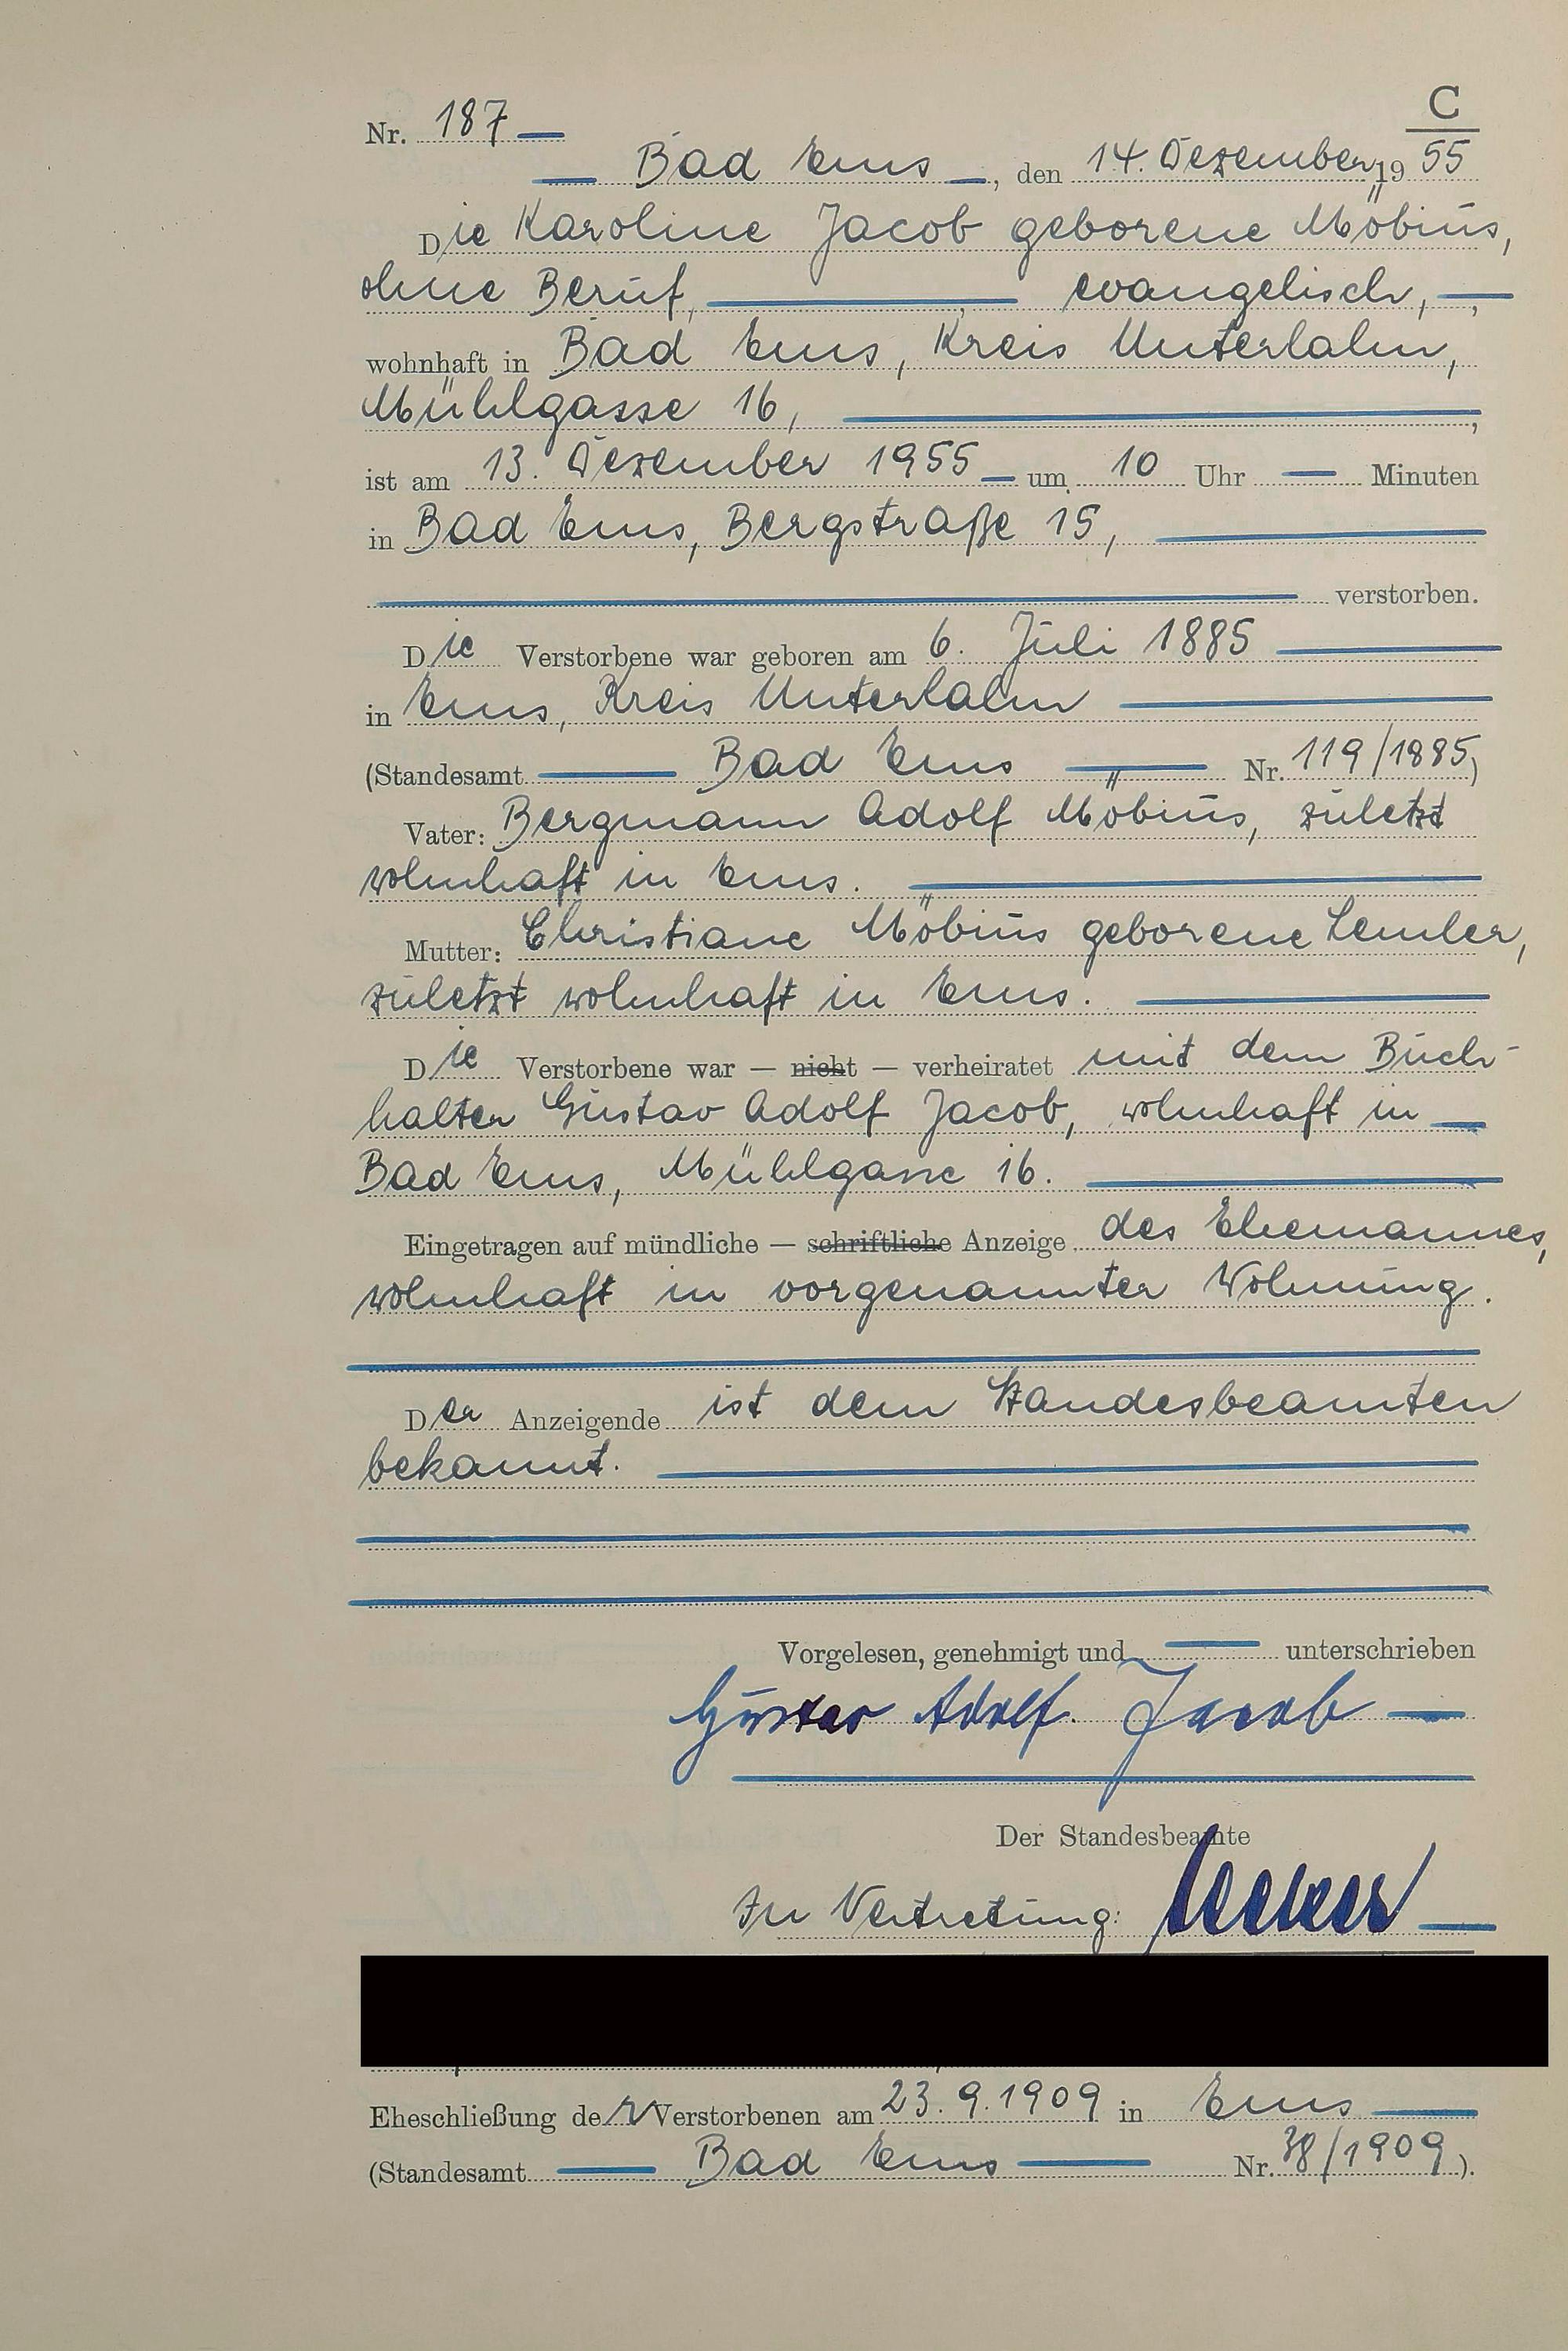 C
Nr. 187
Bad Ems, den 14. Dezember 1955
Die Karoline Jacob geborene Möbius,
ohne Beruf, evangelisch,
wohnhaft in Bad Ems, Kreis Unterlahn,
Mühlgasse 16,
ist am 13. Dezember 1955 um 10 Uhr — Minuten
in Bad Ems, Bergstraße 15,
verstorben.
Die Verstorbene war geboren am 6. Juli 1885
in Ems, Kreis Unterlahn
(Standesamt Bad Ems Nr. 119/1885)
Vater: Bergmann Adolf Möbius, zuletzt
wohnhaft in Ems.
Mutter: Christiane Möbius geborene Lemler,
zuletzt wohnhaft in Ems.
Die Verstorbene war — nicht — verheiratet mit dem Buch-
halter Gustav Adolf Jacob, wohnhaft in
Bad Ems, Mühlgasse 16.
Eingetragen auf mündliche — schriftliche Anzeige des Ehemannes,
wohnhaft in vorgenannter Wohnung.
Der Anzeigende ist dem Standesbeamten
bekannt.
Vorgelesen, genehmigt und — unterschrieben
Gustav Adolf Jacob
Der Standesbeamte
In Vertretung:
Eheschließung der Verstorbenen am 23.9.1909 in Ems
(Standesamt Bad Ems Nr. 38/1909).